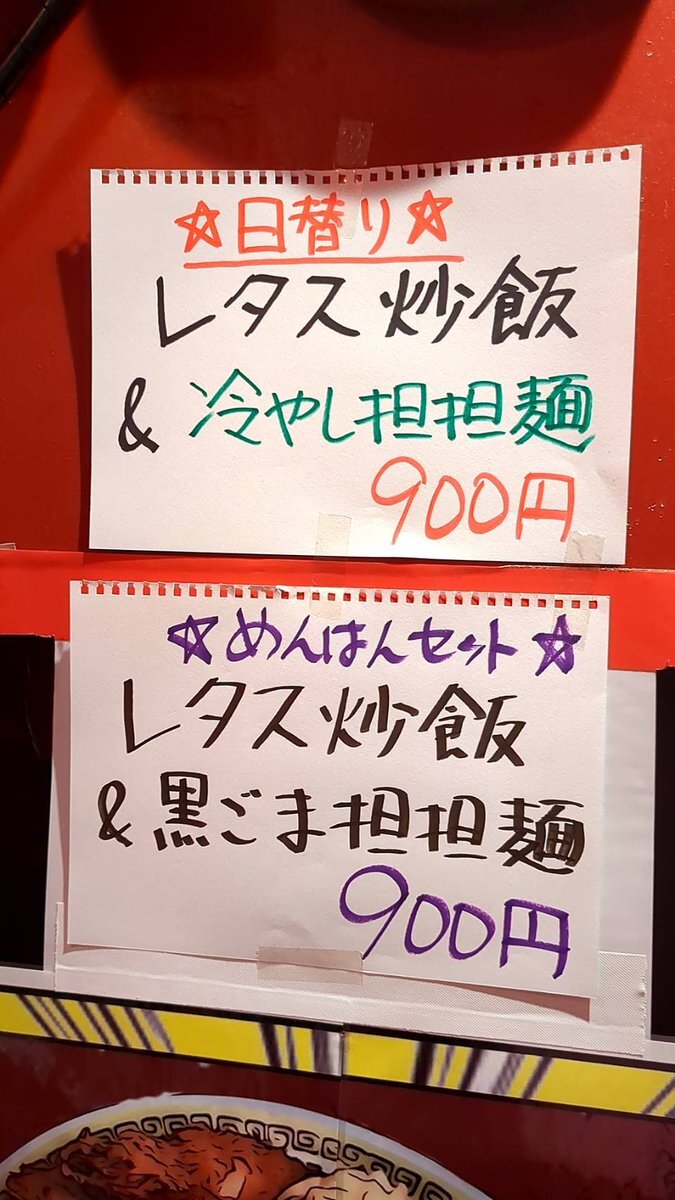 ☆日替り☆
レタス炒飯
& 冷やし担担麺
900円
☆めんはんセット☆
レタス炒飯
& 黒ごま担担麺
900円